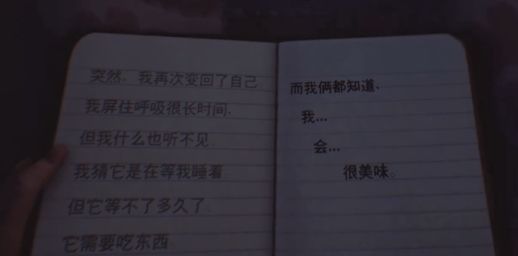 突然，我再次变回了自己
我屏住呼吸很长时间，
但我什么也听不见
我猜它是在等我睡着
但它等不了多久了
它需要吃东西
而我俩都知道，
我...
会...
很美味。